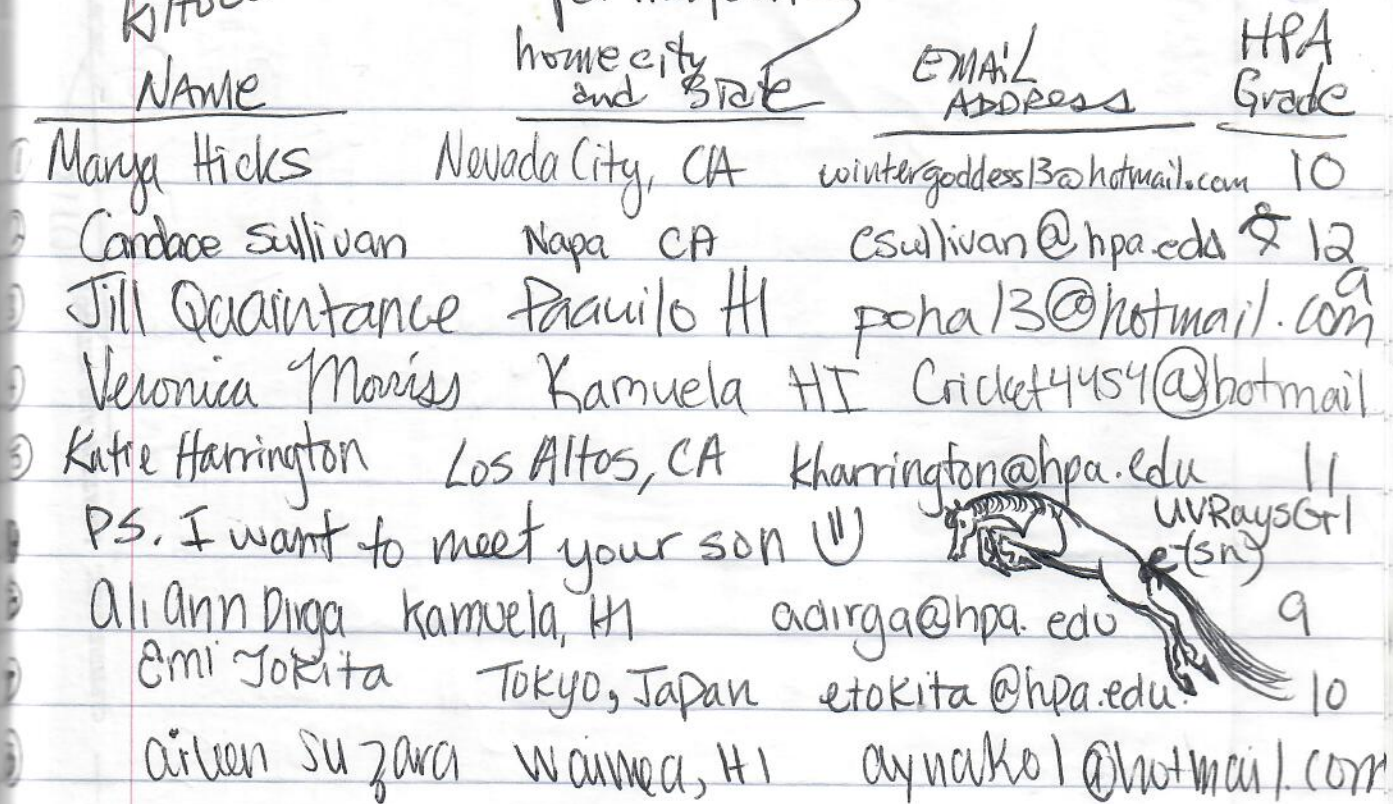 home city HPA
NAME and State EMAIL ADDRESS Grade
1 Marya Hicks Nevada City, CA wintergoddess13@hotmail.com 10
2 Candace Sullivan Napa CA csullivan@hpa.edu 12
3 Jill Quaintance Paauilo HI poha13@hotmail.com 9
4 Veronica Morriss Kamuela HI Cricket4454@hotmail
5 Katie Harrington Los Altos, CA kharrington@hpa.edu 11
PS. I want to meet your son UVRaysGrl
(sn)
6 Ali Ann Dirga Kamuela, HI adirga@hpa.edu 9
7 Emi Tokita Tokyo, Japan etokita@hpa.edu 10
8 aileen suzara Waimea, HI aynako1@hotmail.com